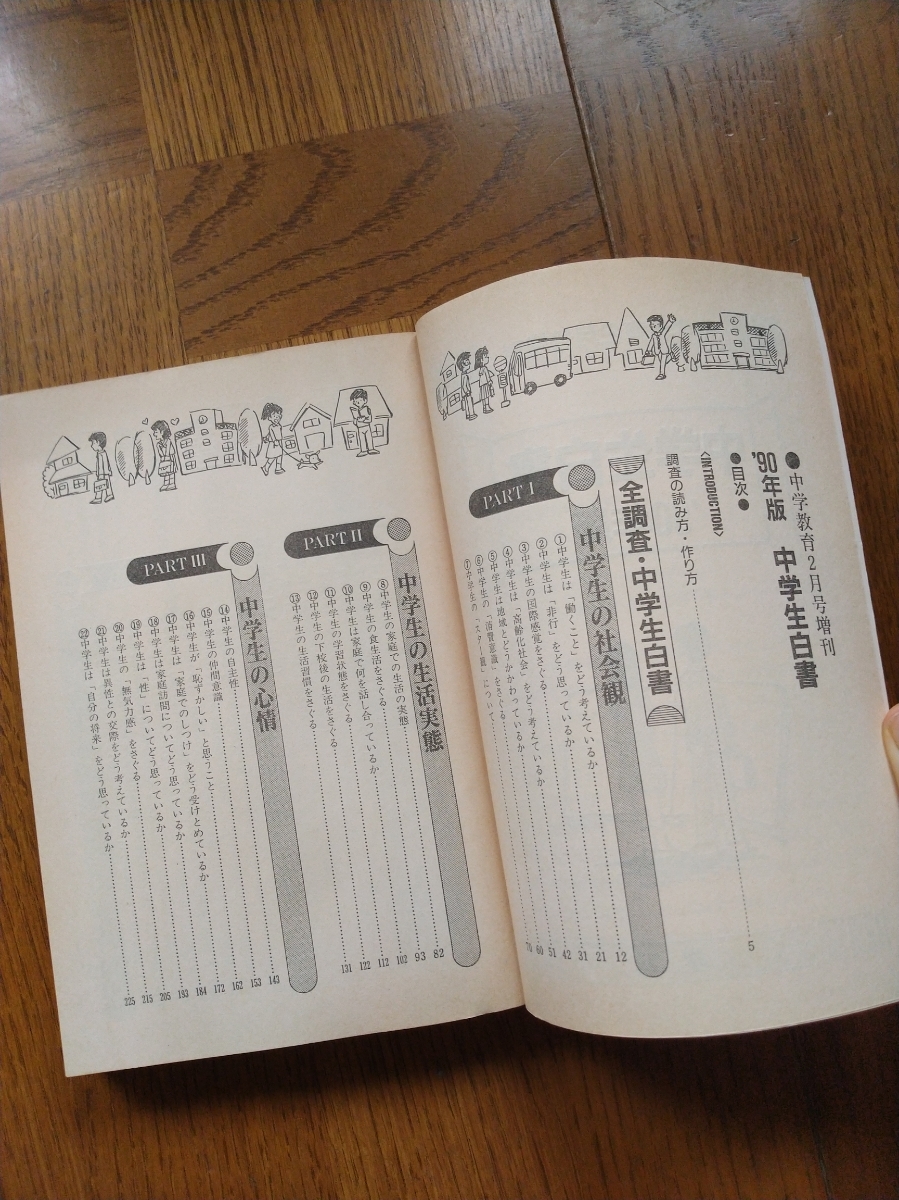 ●中学教育2月号増刊
'90年版 中学生白書
●目次●
〈INTRODUCTION〉
調査の読み方・作り方 5
全調査・中学生白書
PART I
中学生の社会観
①中学生は「働くこと」をどう考えているか 12
②中学生は「非行」をどう思っているか 21
③中学生の国際感覚をさぐる 31
④中学生は「高齢化社会」をどう考えているか 42
⑤中学生は地域とどうかかわっているか 51
⑥中学生の「消費意識」をさぐる 60
⑦中学生の「スター観」について 70
PART II
中学生の生活実態
⑧中学生の家庭での生活の実態 82
⑨中学生の食生活をさぐる 93
⑩中学生は家庭で何を話し合っているか 102
⑪中学生の学習状態をさぐる 112
⑫中学生の下校後の生活をさぐる 122
⑬中学生の生活習慣をさぐる 131
PART III
中学生の心情
⑭中学生の自主性 143
⑮中学生の仲間意識 153
⑯中学生が「恥ずかしい」と思うこと 162
⑰中学生は「家庭でのしつけ」をどう受けとめているか 172
⑱中学生は家庭訪問についてどう思っているか 184
⑲中学生は「性」についてどう思っているか 193
⑳中学生の「無気力感」をさぐる 205
㉑中学生は異性との交際をどう考えているか 215
㉒中学生は「自分の将来」をどう思っているか 225